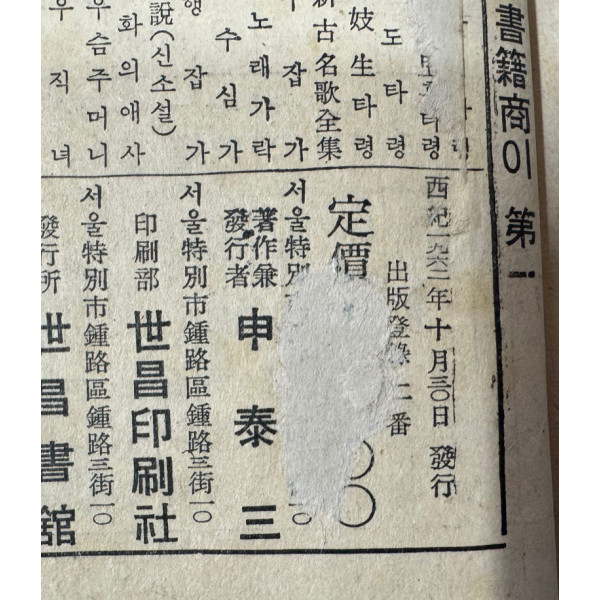 書籍商이 第一
타령
도타령
妓生타령
新古名歌全集
잡가
노래가락
수심가
잡가
說(신소설)
화의애사
우슴주머니
직녀
西紀一九六二年十月三〇日 發行
出版登錄 二番
定價 〇〇
서울特別 一〇
著作兼
發行者 申泰三
서울特別市鍾路區鍾路三街一〇
印刷部 世昌印刷社
서울特別市鍾路區鍾路三街一〇
發行所 世昌書舘